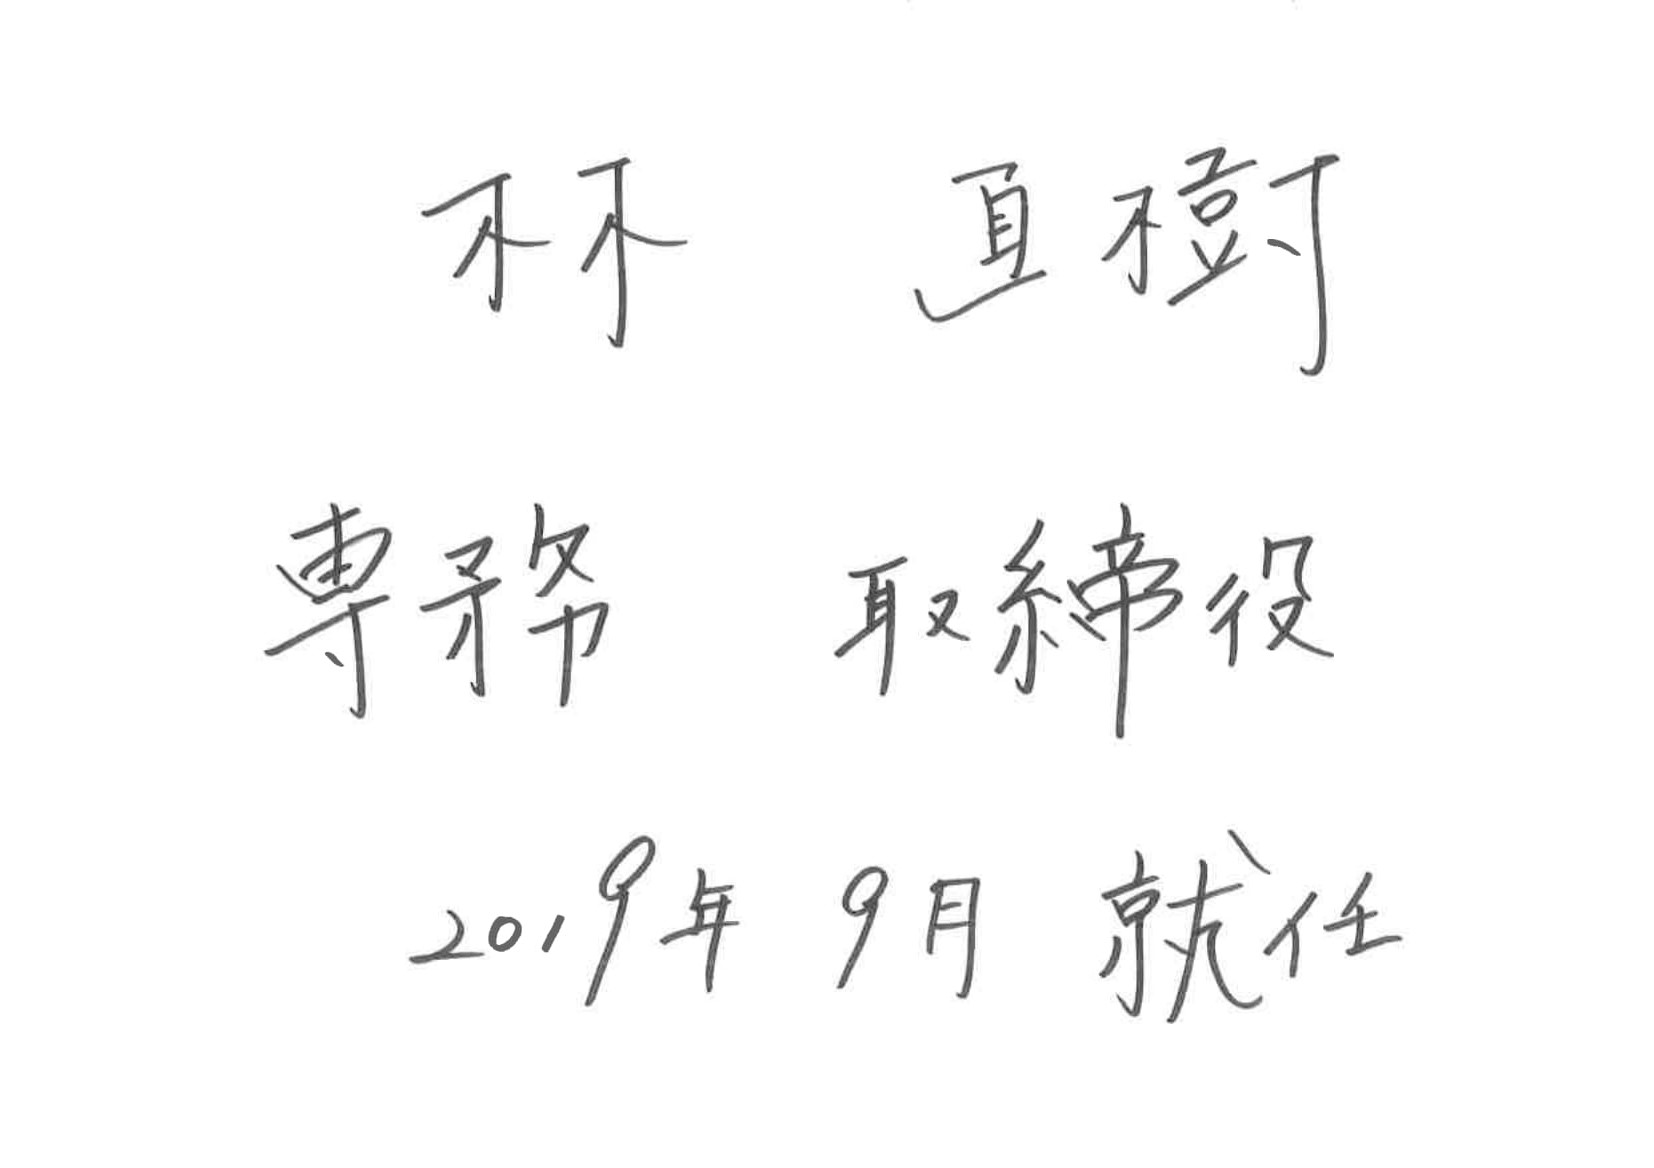 林 直樹
専務 取締役
2019年 9月 就任